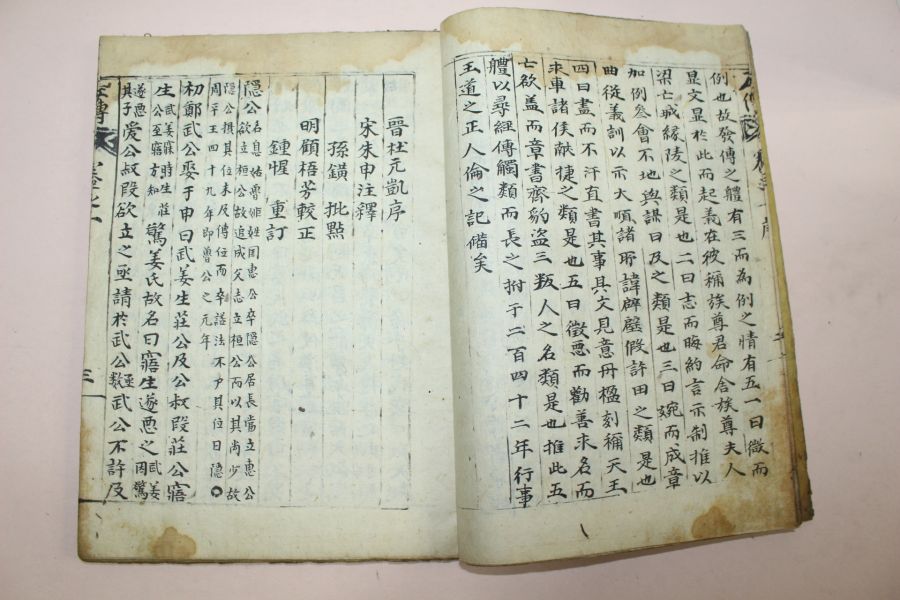 例也故發傳之體有三而為例之情有五一曰微而
显文显於此而起義在彼稱族尊君命舍族尊夫人
梁亡城緣陵之類是也二曰志而晦約言示制推以
加例參會不地與謀曰及之類是也三曰婉而成章
曲從義訓以示大順諸所諱辟璧假許田之類是也
四曰盡而不汙直書其事具文見意丹楹刻桷天王
求車諸侯献捷之類是也五曰懲悪而勸善求名而
亡欲盖而章書齊豹盜三叛人之名類是也推此五
體以尋經傳觸類而長之附于二百四十二年行事
王道之正人倫之記備矣
晉杜元凱序
宋朱申注釋
孫鑛批點
明顧梧芳較正
鍾惺重訂
隱公名息姑魯姬姓囯惠公卒隱公居長當立惠公
欲立桓公故追成父志立桓公而以其尚少故
隱公摂其位未及傳位而卒諡法不尸其位曰隱
周平王四十九年即魯公之元年
初鄭武公娶于申曰武姜生荘公及公叔段荘公寤
生武姜寐時生荘公至寤方知驚姜氏故名曰寤生遂悪之武姜因驚
遂悪其子愛公叔段欲立之亟請於武公亟數武公不許及
左傳
卷之一
三